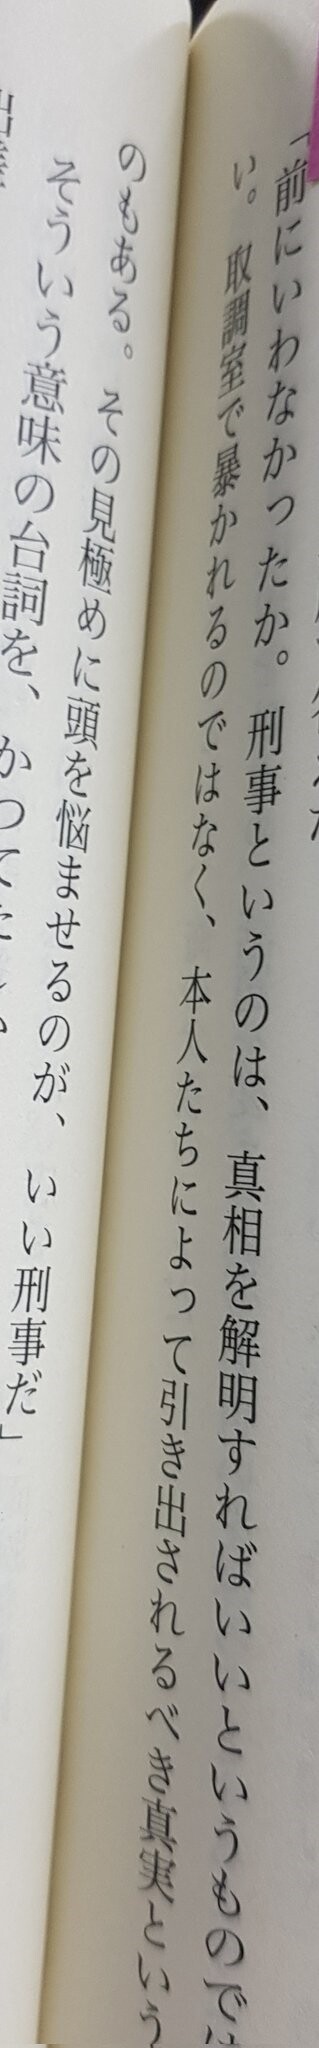 「前にいわなかったか。刑事というのは、真相を解明すればいいというものでは
い。取調室で暴かれるのではなく、本人たちによって引き出されるべき真実という
のもある。その見極めに頭を悩ませるのが、いい刑事だ」
そういう意味の台詞を、かつて